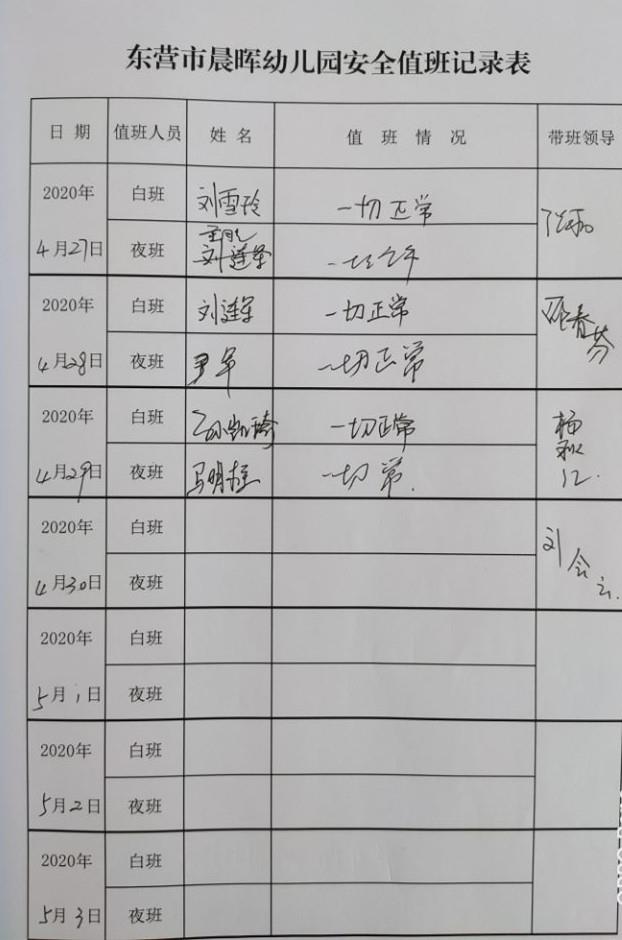 东营市晨晖幼儿园安全值班记录表
日期 值班人员 姓名 值班情况 带班领导
2020年 白班 刘雪玲 一切正常
4月27日 夜班 刘莲军
2020年 白班 刘莲军 一切正常 邵春芬
4月28日 夜班 尹军 一切正常
2020年 白班 孙凯琦 一切正常 杨秋江
4月29日 夜班 马明柱 一切常.
2020年 白班 刘会云.
4月30日 夜班
2020年 白班
5月1日 夜班
2020年 白班
5月2日 夜班
2020年 白班
5月3日 夜班